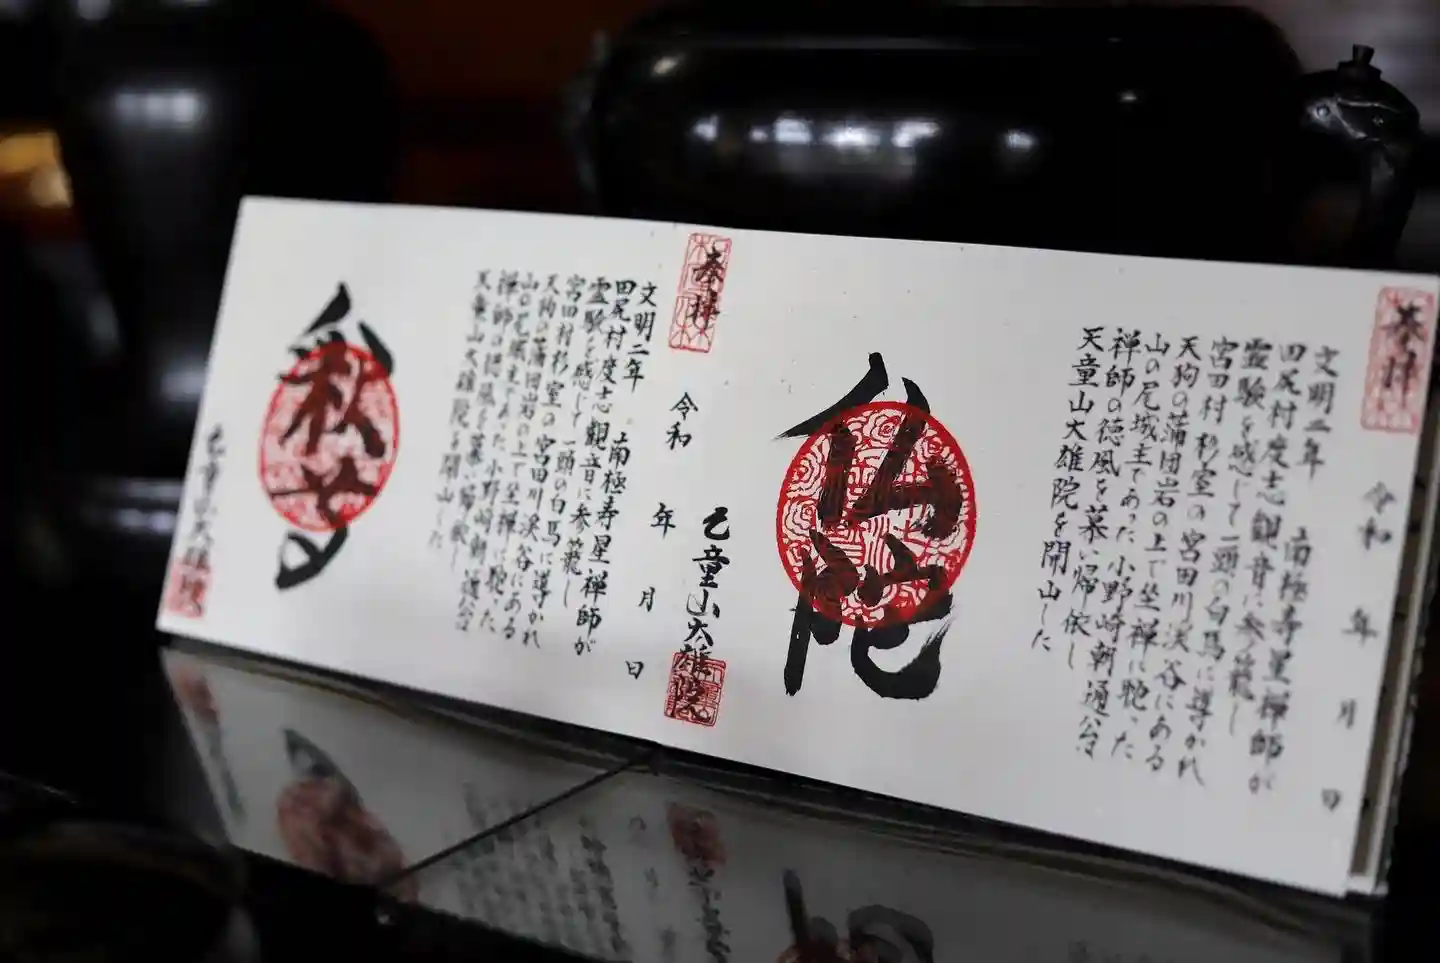 奉拝
令和 年 月 日
文明二年 南極寿星禅師が
田尻村度志観音に参籠し
霊験を感じて一頭の白馬に導かれ
宮田村杉室の宮田川渓谷にある
天狗の蒲団岩の上で坐禅に耽った
山の尾城主であった小野崎朝通公は
禅師の徳風を慕い帰依し
天童山大雄院を開山した
仏陀
天童山大雄院
奉拝
令和 年 月 日
文明二年 南極寿星禅師が
田尻村度志観音に参籠し
霊験を感じて一頭の白馬に導かれ
宮田村杉室の宮田川渓谷にある
天狗の蒲団岩の上で坐禅に耽った
山の尾城主であった小野崎朝通公は
禅師の徳風を慕い帰依し
天童山大雄院を開山した
天童山大雄院